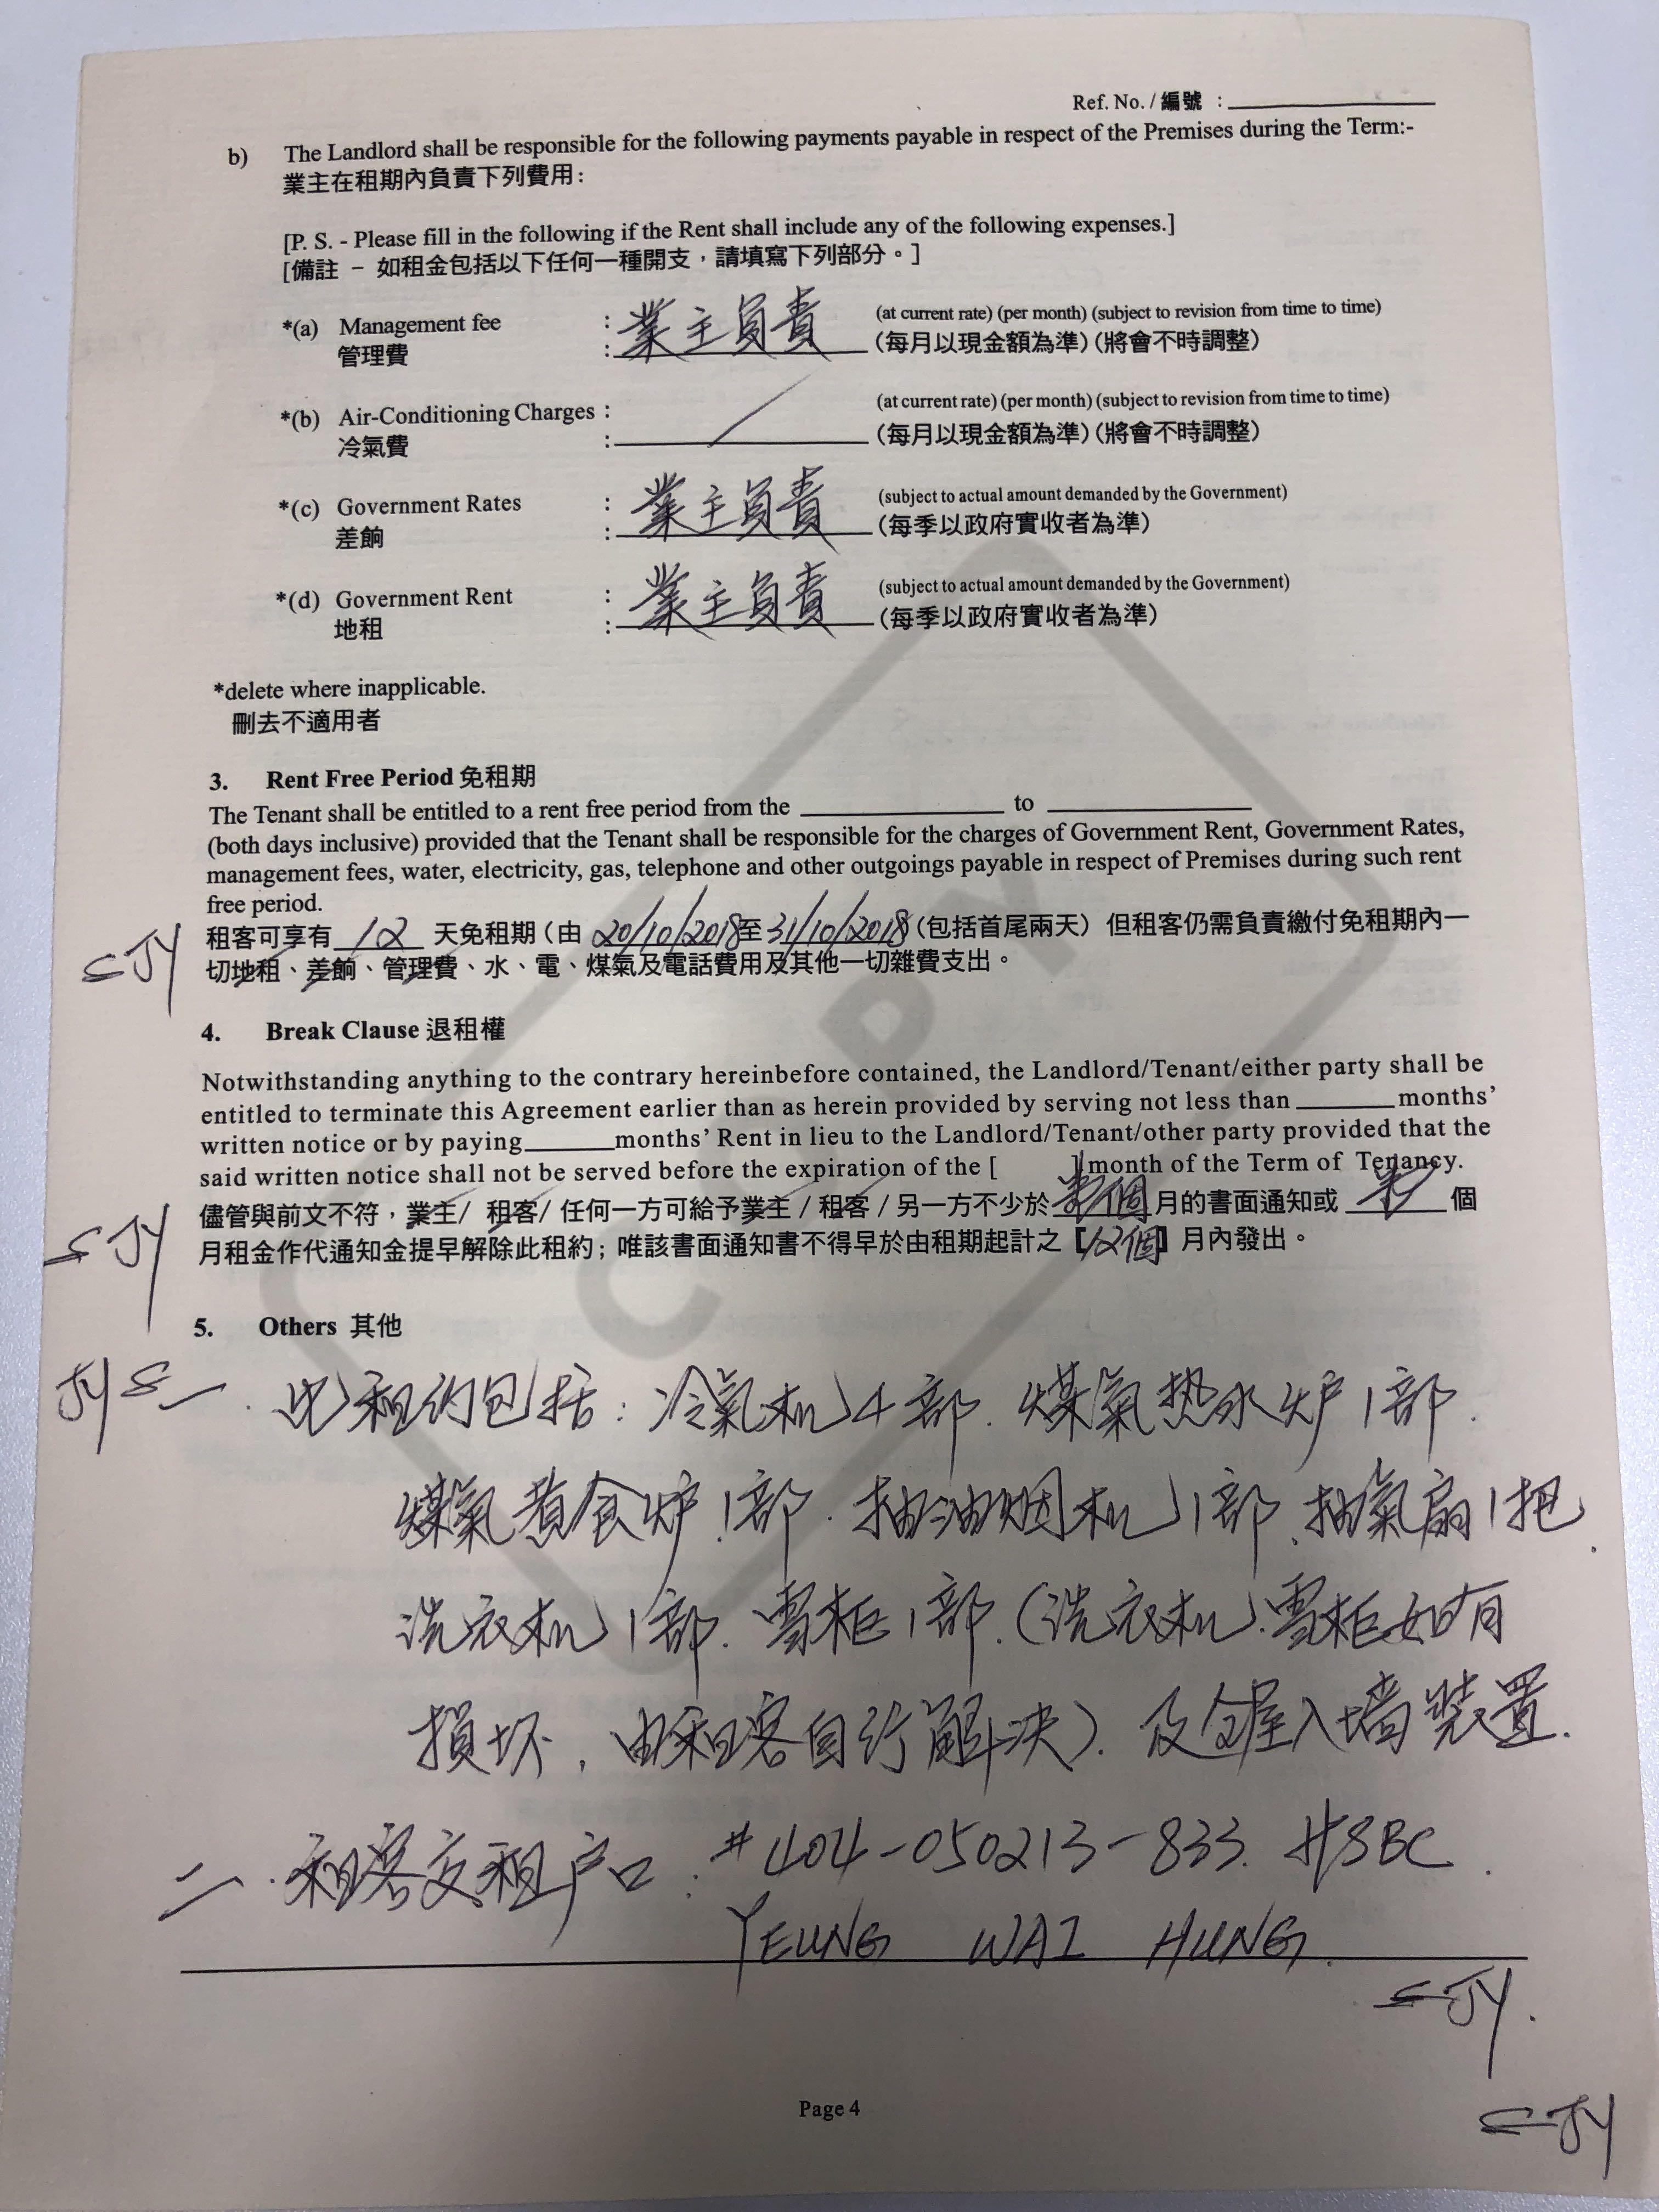 Ref. No. / 編號 :
b) The Landlord shall be responsible for the following payments payable in respect of the Premises during the Term:-
業主在租期內負責下列費用:
[P. S. - Please fill in the following if the Rent shall include any of the following expenses.]
[備註 - 如租金包括以下任何一種開支,請填寫下列部分。]
*(a) Management fee : 業主負責 (at current rate) (per month) (subject to revision from time to time)
管理費 : (每月以現金額為準) (將會不時調整)
*(b) Air-Conditioning Charges : (at current rate) (per month) (subject to revision from time to time)
冷氣費 : (每月以現金額為準) (將會不時調整)
*(c) Government Rates : 業主負責 (subject to actual amount demanded by the Government)
差餉 : (每季以政府實收者為準)
*(d) Government Rent : 業主負責 (subject to actual amount demanded by the Government)
地租 : (每季以政府實收者為準)
*delete where inapplicable.
刪去不適用者
3. Rent Free Period 免租期
The Tenant shall be entitled to a rent free period from the to
(both days inclusive) provided that the Tenant shall be responsible for the charges of Government Rent, Government Rates,
management fees, water, electricity, gas, telephone and other outgoings payable in respect of Premises during such rent
free period.
租客可享有 12 天免租期 (由 20/10/2018 至 31/10/2018 (包括首尾兩天) 但租客仍需負責繳付免租期內一
切地租、差餉、管理費、水、電、煤氣及電話費用及其他一切雜費支出。
JY
4. Break Clause 退租權
Notwithstanding anything to the contrary hereinbefore contained, the Landlord/Tenant/either party shall be
entitled to terminate this Agreement earlier than as herein provided by serving not less than months'
written notice or by paying months' Rent in lieu to the Landlord/Tenant/other party provided that the
said written notice shall not be served before the expiration of the [ ] month of the Term of Tenancy.
儘管與前文不符,業主/ 租客/ 任何一方可給予業主 / 租客 / 另一方不少於 個 月的書面通知或 個
月租金作代通知金提早解除此租約; 唯該書面通知書不得早於由租期起計之【12個】月內發出。
JY
5. Others 其他
JY 一. 此租約包括: 冷氣机4部. 煤氣热水炉1部.
煤氣煮食炉1部. 抽油烟机1部、抽氣扇1把.
洗衣机1部. 雪柜1部. (洗衣机.雪柜如有
損坏, 由租客自行解决). 及全屋入墙裝置.
二. 租客交租户口: #404-050213-833. HSBC.
YEUNG WAI HUNG.
JY.
Page 4
JY
COPY